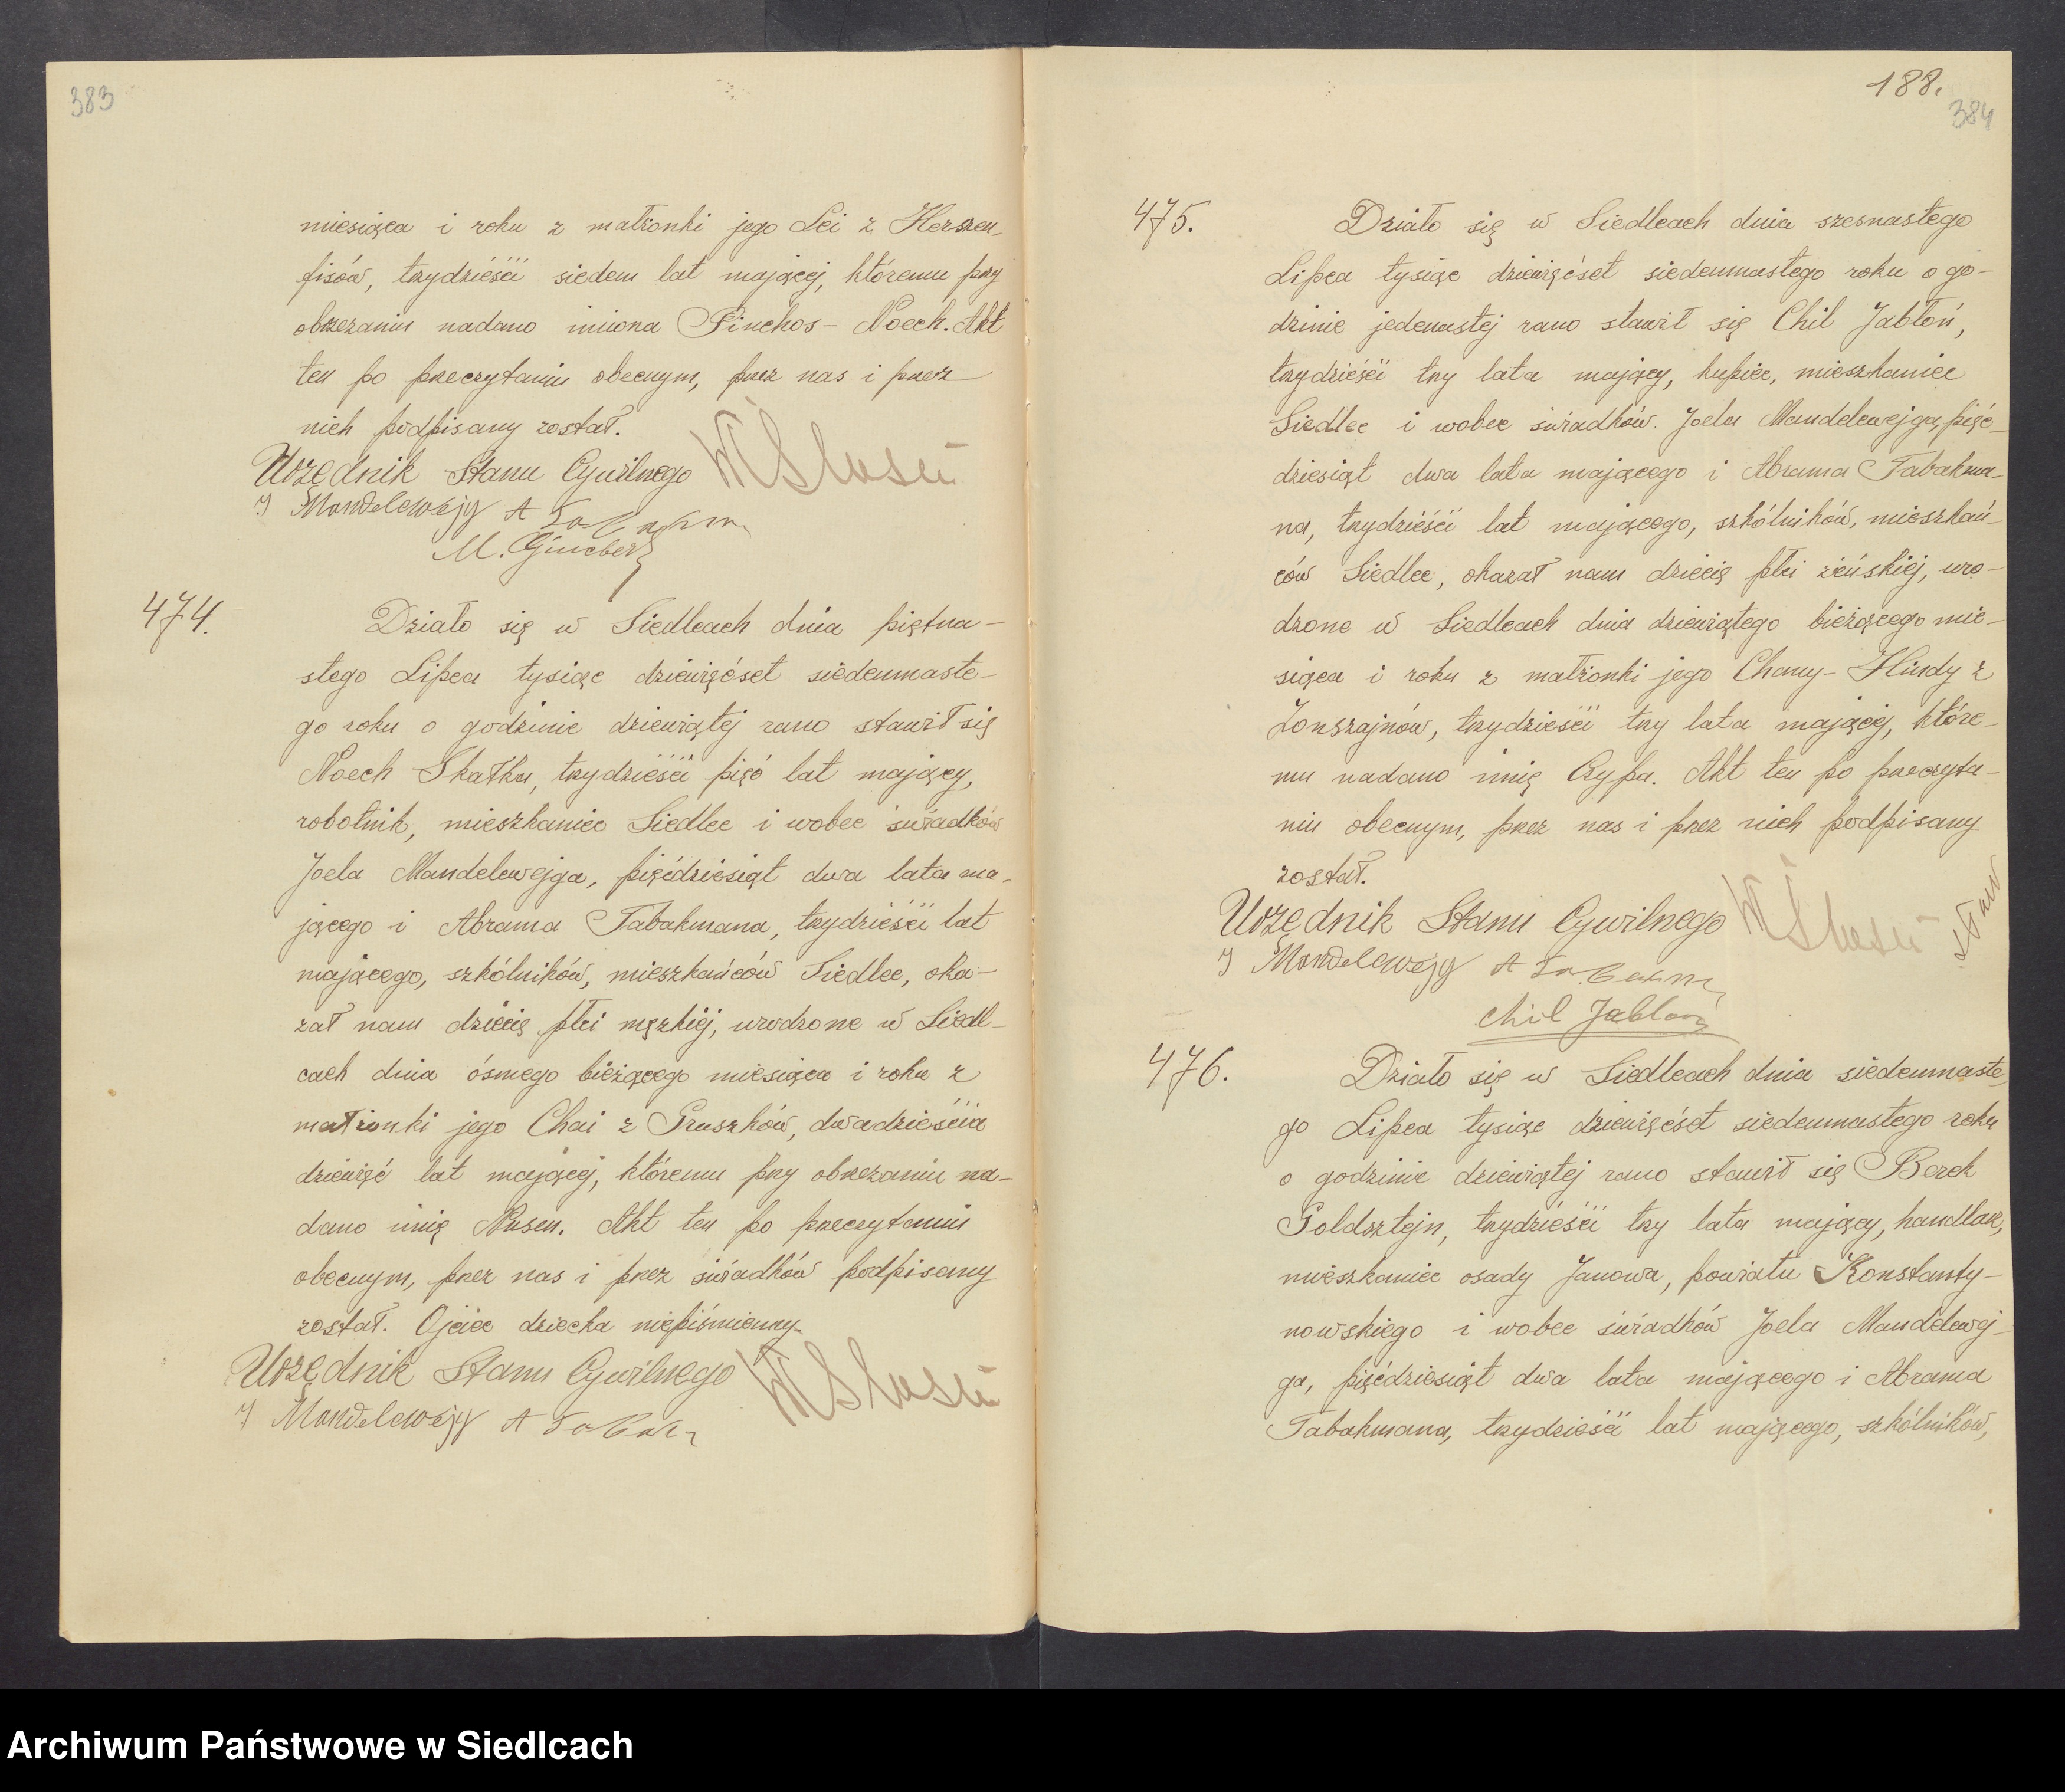 383
miesiąca i roku z małżonki jego Lei z Herszen-
fisów, trzydzieści siedem lat mającej, któremu przy
obrzezaniu nadano imiona Pinchos-Noech. Akt
ten po przeczytaniu obecnym, przez nas i przez
nich podpisany został.
Urzędnik Stanu Cywilnego
J Mandelewejg A
M. Gincberg
474.
Działo się w Siedlcach dnia piętna-
stego Lipca tysiąc dziewięćset siedemnaste-
go roku o godzinie dziewiątej rano stawił się
Noech Skałka, trzydzieści pięć lat mający,
robotnik, mieszkaniec Siedlec i wobec świadków
Joela Mandelewejga, pięćdziesiąt dwa lata ma-
jącego i Abrama Tabakmana, trzydzieści lat
mającego, szkólników, mieszkańców Siedlec, oka-
zał nam dziecię płci męzkiej, urodzone w Siedl-
cach dnia ósmego bieżącego miesiąca i roku z
małżonki jego Chai z Gruszków, dwadzieścia
dziewięć lat mającej, któremu przy obrzezaniu na-
dano imię Nusen. Akt ten po przeczytaniu
obecnym, przez nas i przez świadków podpisany
został. Ojciec dziecka niepiśmienny.
Urzędnik Stanu Cywilnego
J Mandelewejg A
188.
384
475.
Działo się w Siedlcach dnia szesnastego
Lipca tysiąc dziewięćset siedemnastego roku o go-
dzinie jedenastej rano stawił się Chil Jabłoń,
trzydzieści trzy lata mający, kupiec, mieszkaniec
Siedlec i wobec świadków. Joela Mandelewejga, pięć-
dziesiąt dwa lata mającego i Abrama Tabakma-
na, trzydzieści lat mającego, szkólników, mieszkań-
ców Siedlec, okazał nam dziecię płci żeńskiej, uro-
dzone w Siedlcach dnia dziewiątego bieżącego mie-
siąca i roku z małżonki jego Chany-Hindy z
Zonszajnów, trzydzieści trzy lata mającej, które-
mu nadano imię Cypa. Akt ten po przeczyta-
niu obecnym, przez nas i przez nich podpisany
został.
Urzędnik Stanu Cywilnego
J Mandelewejg A
Chil Jabłoń
476.
Działo się w Siedlcach dnia siedemnaste
go Lipca tysiąc dziewięćset siedemnastego roku
o godzinie dziewiątej rano stawił się Berek
Goldsztejn, trzydzieści trzy lata mający, handlarz,
mieszkaniec osady Janowa, powiatu Konstanty-
nowskiego i wobec świadków Joela Mandelewej-
ga, pięćdziesiąt dwa lata mającego i Abrama
Tabakmana, trzydzieści lat mającego, szkólników,
Archiwum Państwowe w Siedlcach